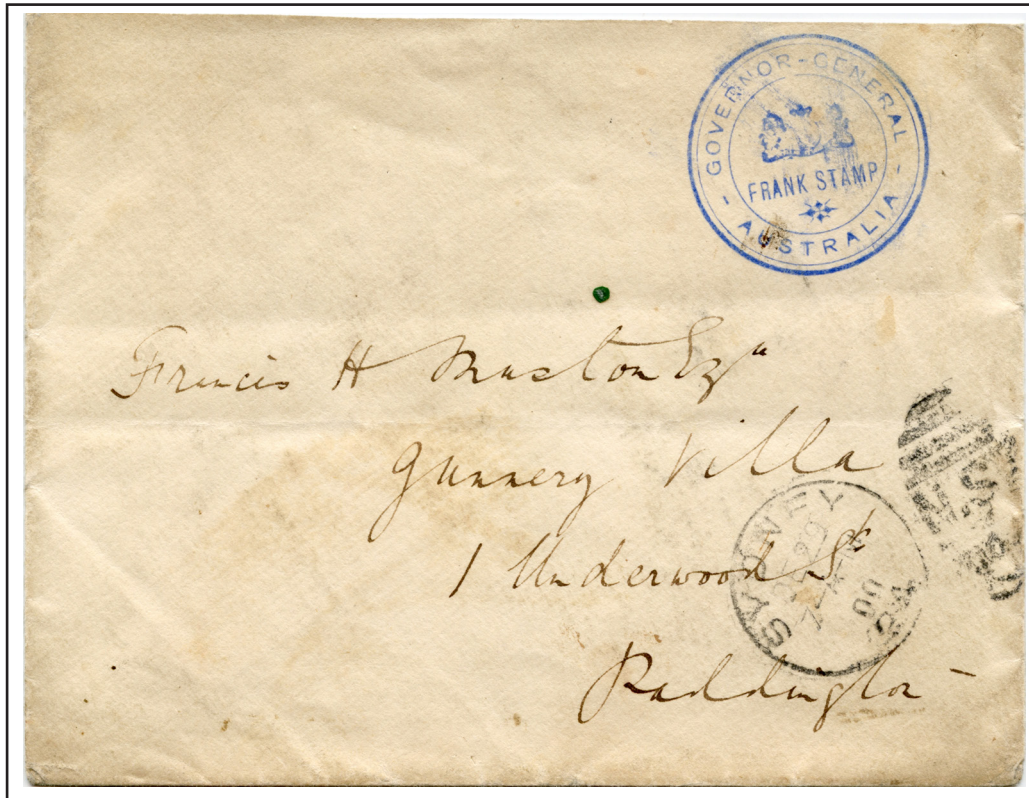 GOVERNOR-GENERAL
FRANK STAMP
- AUSTRALIA -
Francis H Muston Esqr
Gunnery Villa
1 Underwood St
Paddington -
SYDNEY
29
7
00